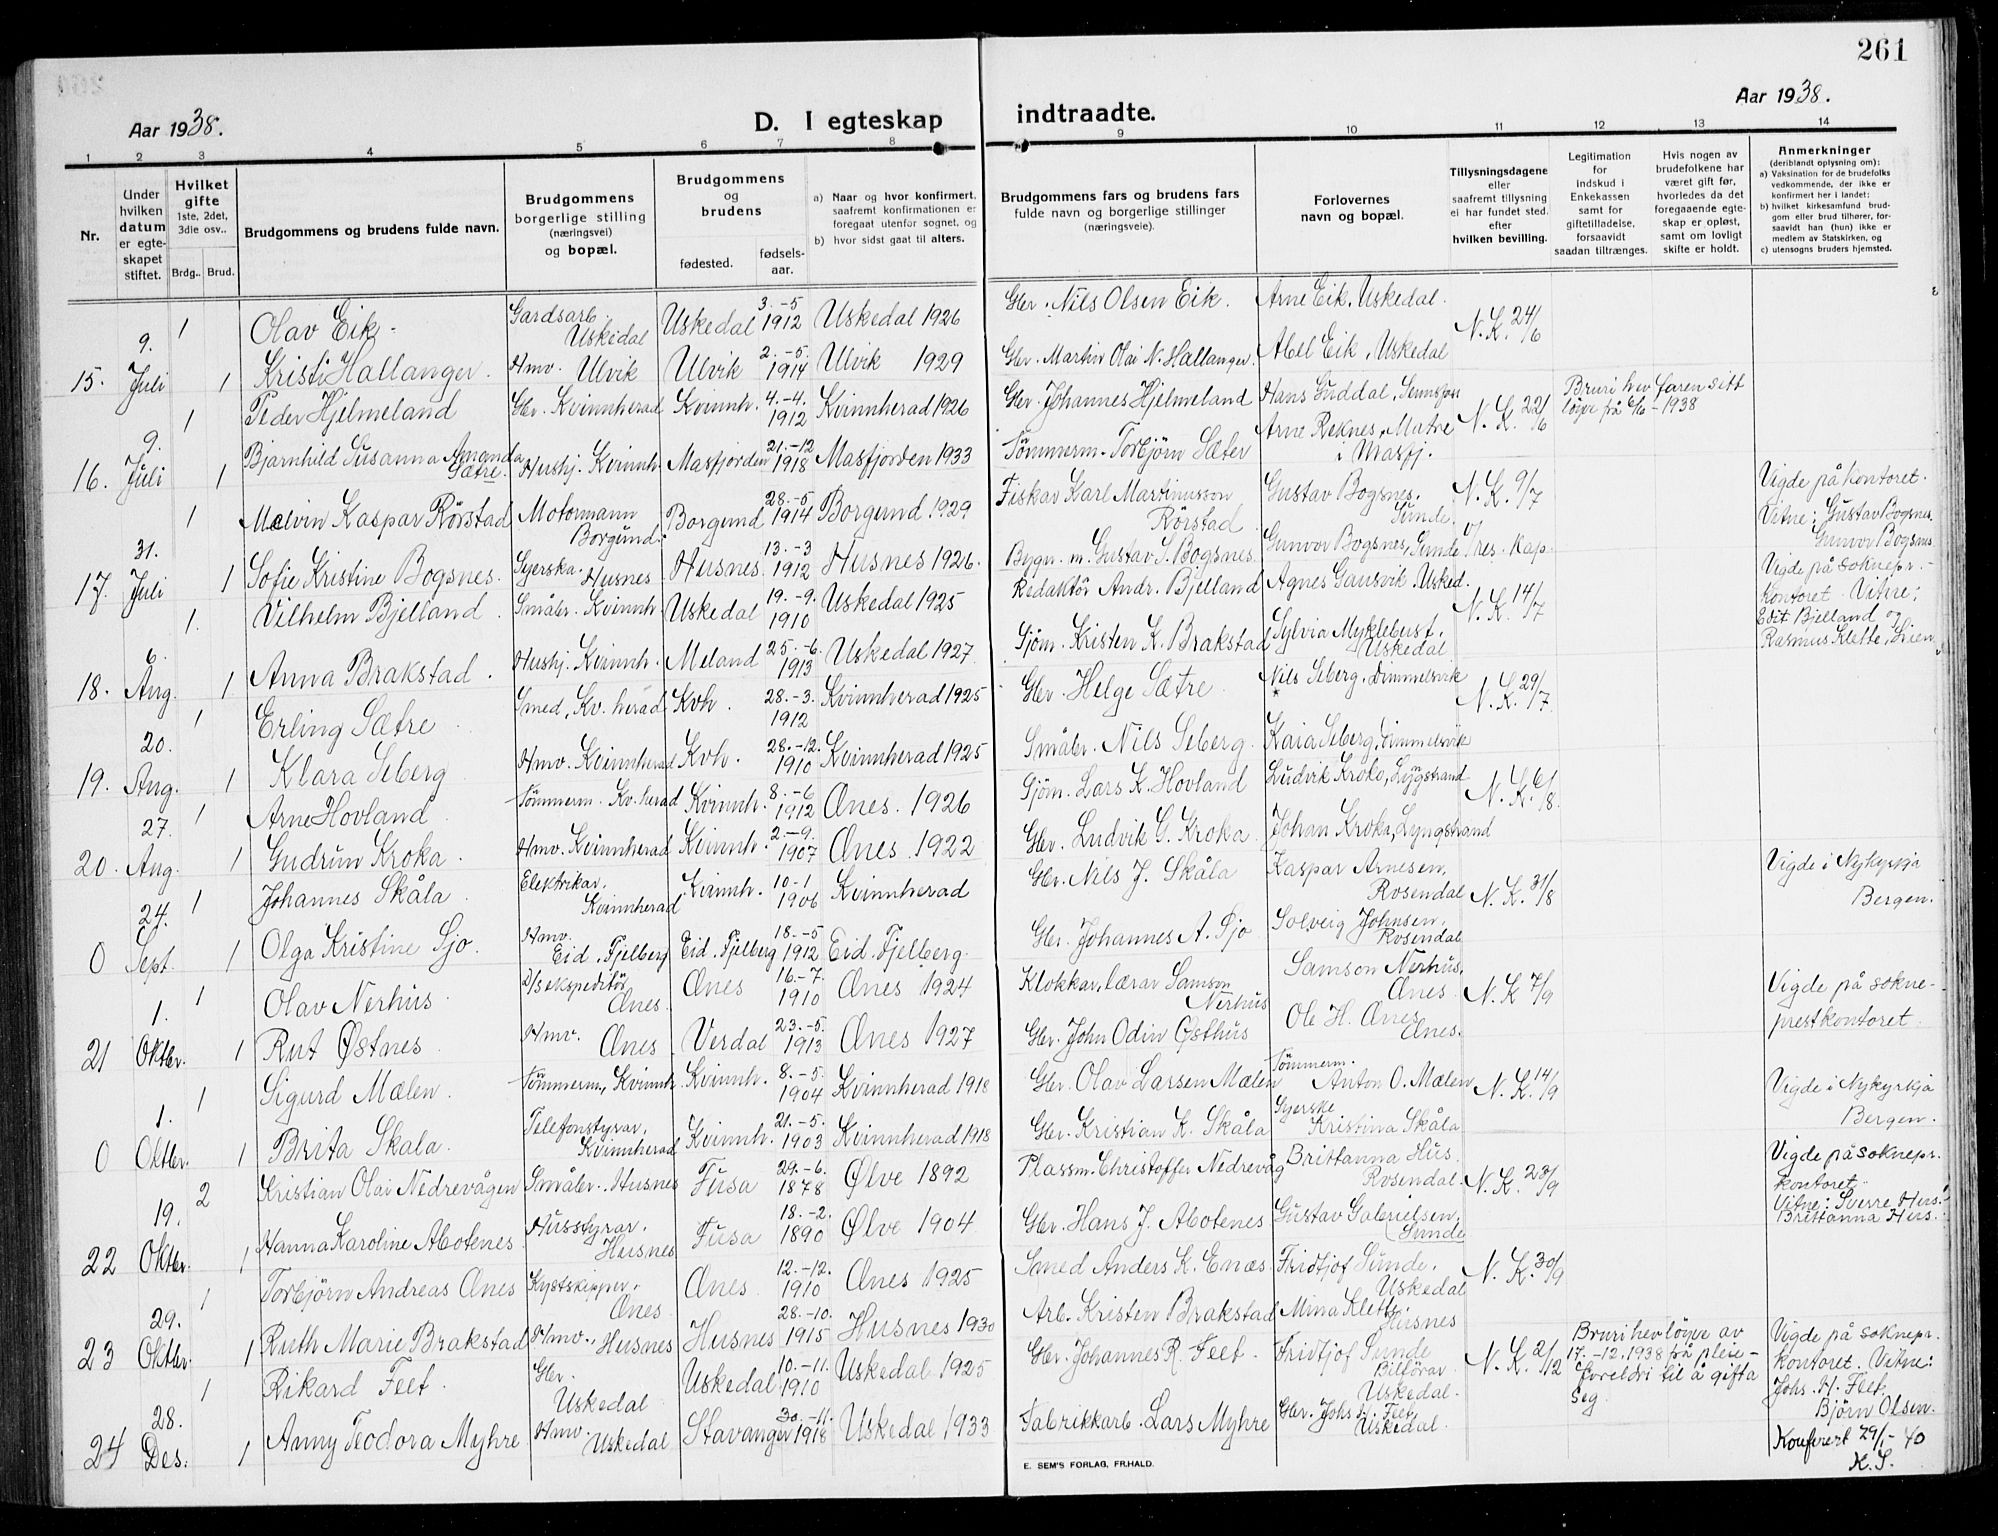 261
Aar 1938.
D. I egteskap indtraadte.
Aar 1938.
1 2 3 4 5 6 7 8 9 10 11 12 13 14
Nr.
Under hvilken datum er egteskapet stiftet.
Hvilket gifte 1ste, 2det, 3die osv..
Brdg.. Brud.
Brudgommens og brudens fulde navn.
Brudgommens borgerlige stilling (næringsvei) og bopæl.
Brudgommens og brudens
fødested. fødsels-aar.
a) Naar og hvor konfirmert, saafremt konfirmationen er foregaat utenfor sognet, og
b) hvor sidst gaat til alters.
Brudgommens fars og brudens fars fulde navn og borgerlige stillinger (næringsveie).
Forlovernes navn og bopæl.
Tillysningsdagene eller saafremt tillysning ei har fundet sted. efter hvilken bevilling.
Legitimation for Indskud i Enkekassen samt for giftetilladelse, forsaavidt saadan tiltrænges.
Hvis nogen av brudefolkene har været gift før, hvorledes da det foregaaende egteskap er opløst, samt om lovligt skifte er holdt.
Anmerkninger (deriblandt oplysning om):
a) Vaksination for de brudefolks vedkommende, der ikke er konfirmert her i landet:
b) hvilket kirkesamfund brudgom eller brud tilhører, forsaavidt han (hun) ikke er medlem av Statskirken, og
c) utensogns bruders hjemsted.
9. 1 Olav Eik. Gardsarb. Uskedal Uskedal 3.-5 1912 Uskedal 1926 Gbr. Nils Olsen Eik. Arne Eik, Uskedal. N. K. 24/6
15. Juli 1 Kristi Hallanger. Hmv. Ulvik Ulvik 2.-5. 1914 Ulvik 1929 Gbr. Martin Olai N. Hallanger. Abel Eik, Uskedal
9. 1 Peder Hjelmeland Gbr. Kvinnherad Kvinnh. 4.-4. 1912 Kvinnherad 1926 Gbr. Johannes Hjelmeland Hans Guddal, N. K. 22/6 Bruri hev faren sitt løyve frå 6/6-1938
16. Juli 1 Bjarnhild Susanna Amanda Sætre. Hushj. Kvinnh. Masfjorden 21.-12 1918 Masfjorden 1933 Tømmerm. Torbjørn Sæter Arne Reknes, Matre i Masfj.
31. 1 Malvin Kaspar Rörstad Motormann Borgund. Borgund 28.-5 1914 Borgund 1929 Fiskar Karl Martinusson Rörstad Gustav Bogsnes, Sunde. N. K. 9/7 Vigde på kontoret. Vitne: Gustav Bogsnes. Gunvor Bogsnes
17. Juli 1 Sofie Kristine Bogsnes. Syerska. Husnes Husnes 13.-3 1912 Husnes 1926. Bygn. m. Gustav S. Bogsnes. Gunvor Bogsnes, Sunde v/ res. kap.
6. 1. Vilhelm Bjelland Småbr. Kvinnh. Uskedal 19.-9. 1910 Uskedal 1925 Redaktör Andr. Bjelland Agnes Gausvik, Usked. N. K. 14/7 Vigde på soknepr.-kontoret. Vitne: Edit Bjelland og Rasmus Klette, Lien
18. Aug. 1 Anna Brakstad. Hushj. Kvinnh. Meland 25.-6. 1913 Uskedal 1927. Sjöm. Kristen K. Brakstad Sylvia Myklebust, Uskedal
20. 1 Erling Sætre Smed, Kv. herad Kvh. 28.-3. 1912 Kvinnherad 1925 Gbr. Helge Sætre. Nils Seberg, Dimmelsvik N. K. 29/7
19. Aug. 1 Klara Seberg Hmv. Kvinnherad Kvh. 28.-12. 1910 Kvinnherad 1925 Småbr. Nils Seberg. Kaia Seberg, Dimmelsvik
27. 1 Arne Hovland Tömmerm. Kv. herad Kvinnh. 8.-6 1912 Ænes. 1926 Sjöm. Lars K. Hovland Ludvik Kroka, Lygstrand N. K. 6/8.
20. Aug. 1 Gudrun Kroka. Hmv. Kvinnherad Kvinnh. 2.-9. 1907 Ænes. 1922 Gbr. Ludvik G. Kroka. Johan Kroka, Lyngstrand
24. 1 Johannes Skåla. Elektrikar, Kvinnherad Kvinnh. 10-1 1906 Kvinnherad Gbr. Nils J. Skåla Kaspar Arnesen, Rosendal N. K. 31/8 Vigde i Nykyrkja Bergen.
0 Sept. 1 Olga Kristine Sjo. Hmv. Eid, Fjelberg Eid, Fjelberg 18.-5 1912 Eid, Fjelberg. Gbr. Johannes A. Sjo Solveig Johnsen, Rosendal
1. 1 Olav Nerhus. D/sekspeditör Ænes. Ænes 16.-7. 1910 Ænes 1924 Klokkar, lærar Samson Nerhus Samson Nerhus, Ænes N. K 7/9 Vigde på sokneprestkontoret.
21 Oktbr. 1 Rut Østnes Hmv. Ænes Verdal 23.-5. 1913 Ænes 1927 Gbr. John Odin Østhus Ole H. Ænes, Ænes.
1. 1 Sigurd Mælen. Tömmerm., Kvinnh. Kvinnh. 8.-5. 1904 Kvinnherad 1918 Gbr. Olav Larsen Mælen Tömmerm. Anton O. Mælen N. K. 14/9 Vigde i Nykyrkja Bergen.
0 Oktbr. 1 Brita Skåla. Telefonstyrar, Kvinnherad Kvinnh. 21.-5. 1903 Kvinnherad 1918 Gbr. Kristian K. Skåla Syerske Kristina Skåla
19. 2 Kristian Olai Nedrevågen Småbr. Husnes Fusa 29.-6. 1878 Ølve 1892 Plassm. Christoffer Nedrevåg Brittanna Hus. Rosendal. N. K. 23/9 Vigde på soknepr. kontoret. Vitne: Sverre Hus. Brittanna Hus.
22 Oktbr. 1 Hanna Karoline Abotenes Husstyrar. Husnes Fusa 18.-2. 1890 Ølve 1904 Gbr. Hans J. Abotenes Gustav Gabrielsen, Sunde
29. 1 Torbjörn Andreas Ænes Kystskipper, Ænes. Ænes. 12.-12. 1910 Ænes 1925 Smed Anders K. Enæs Fridtjof Sunde, Uskedal N. K. 30/9
23 Oktbr. 1 Ruth Marie Brakstad Hmv., Husnes Husnes 28.-10. 1915 Husnes 1930 Arb. Kristen Brakstad Mina Klette, Husnes
28. 1 Rikard Feet. Gbr. Uskedal Uskedal 10.-11. 1910 Uskedal 1925 Gbr. Johannes R. Feet. Fridtjof Sunde Bilförar Uskedal. N. K. 2/12 Bruri hev løyve av 17.-12.1938 frå pleie-foreldri til å gifta seg. Vigde på soknepr. kontoret. Vitne: Johs. H. Feet, Björn Olsen.
24 Des. 1 Anny Teodora Myhre Hmv. Uskedal Stavanger 30.-11. 1918 Uskedal 1933 Fabrikkarb. Lars Myhre Gbr. Johs H. Feet, Uskedal. Konferert 29/1-40 K. S.
E. SEM'S FORLAG, FR.HALD.